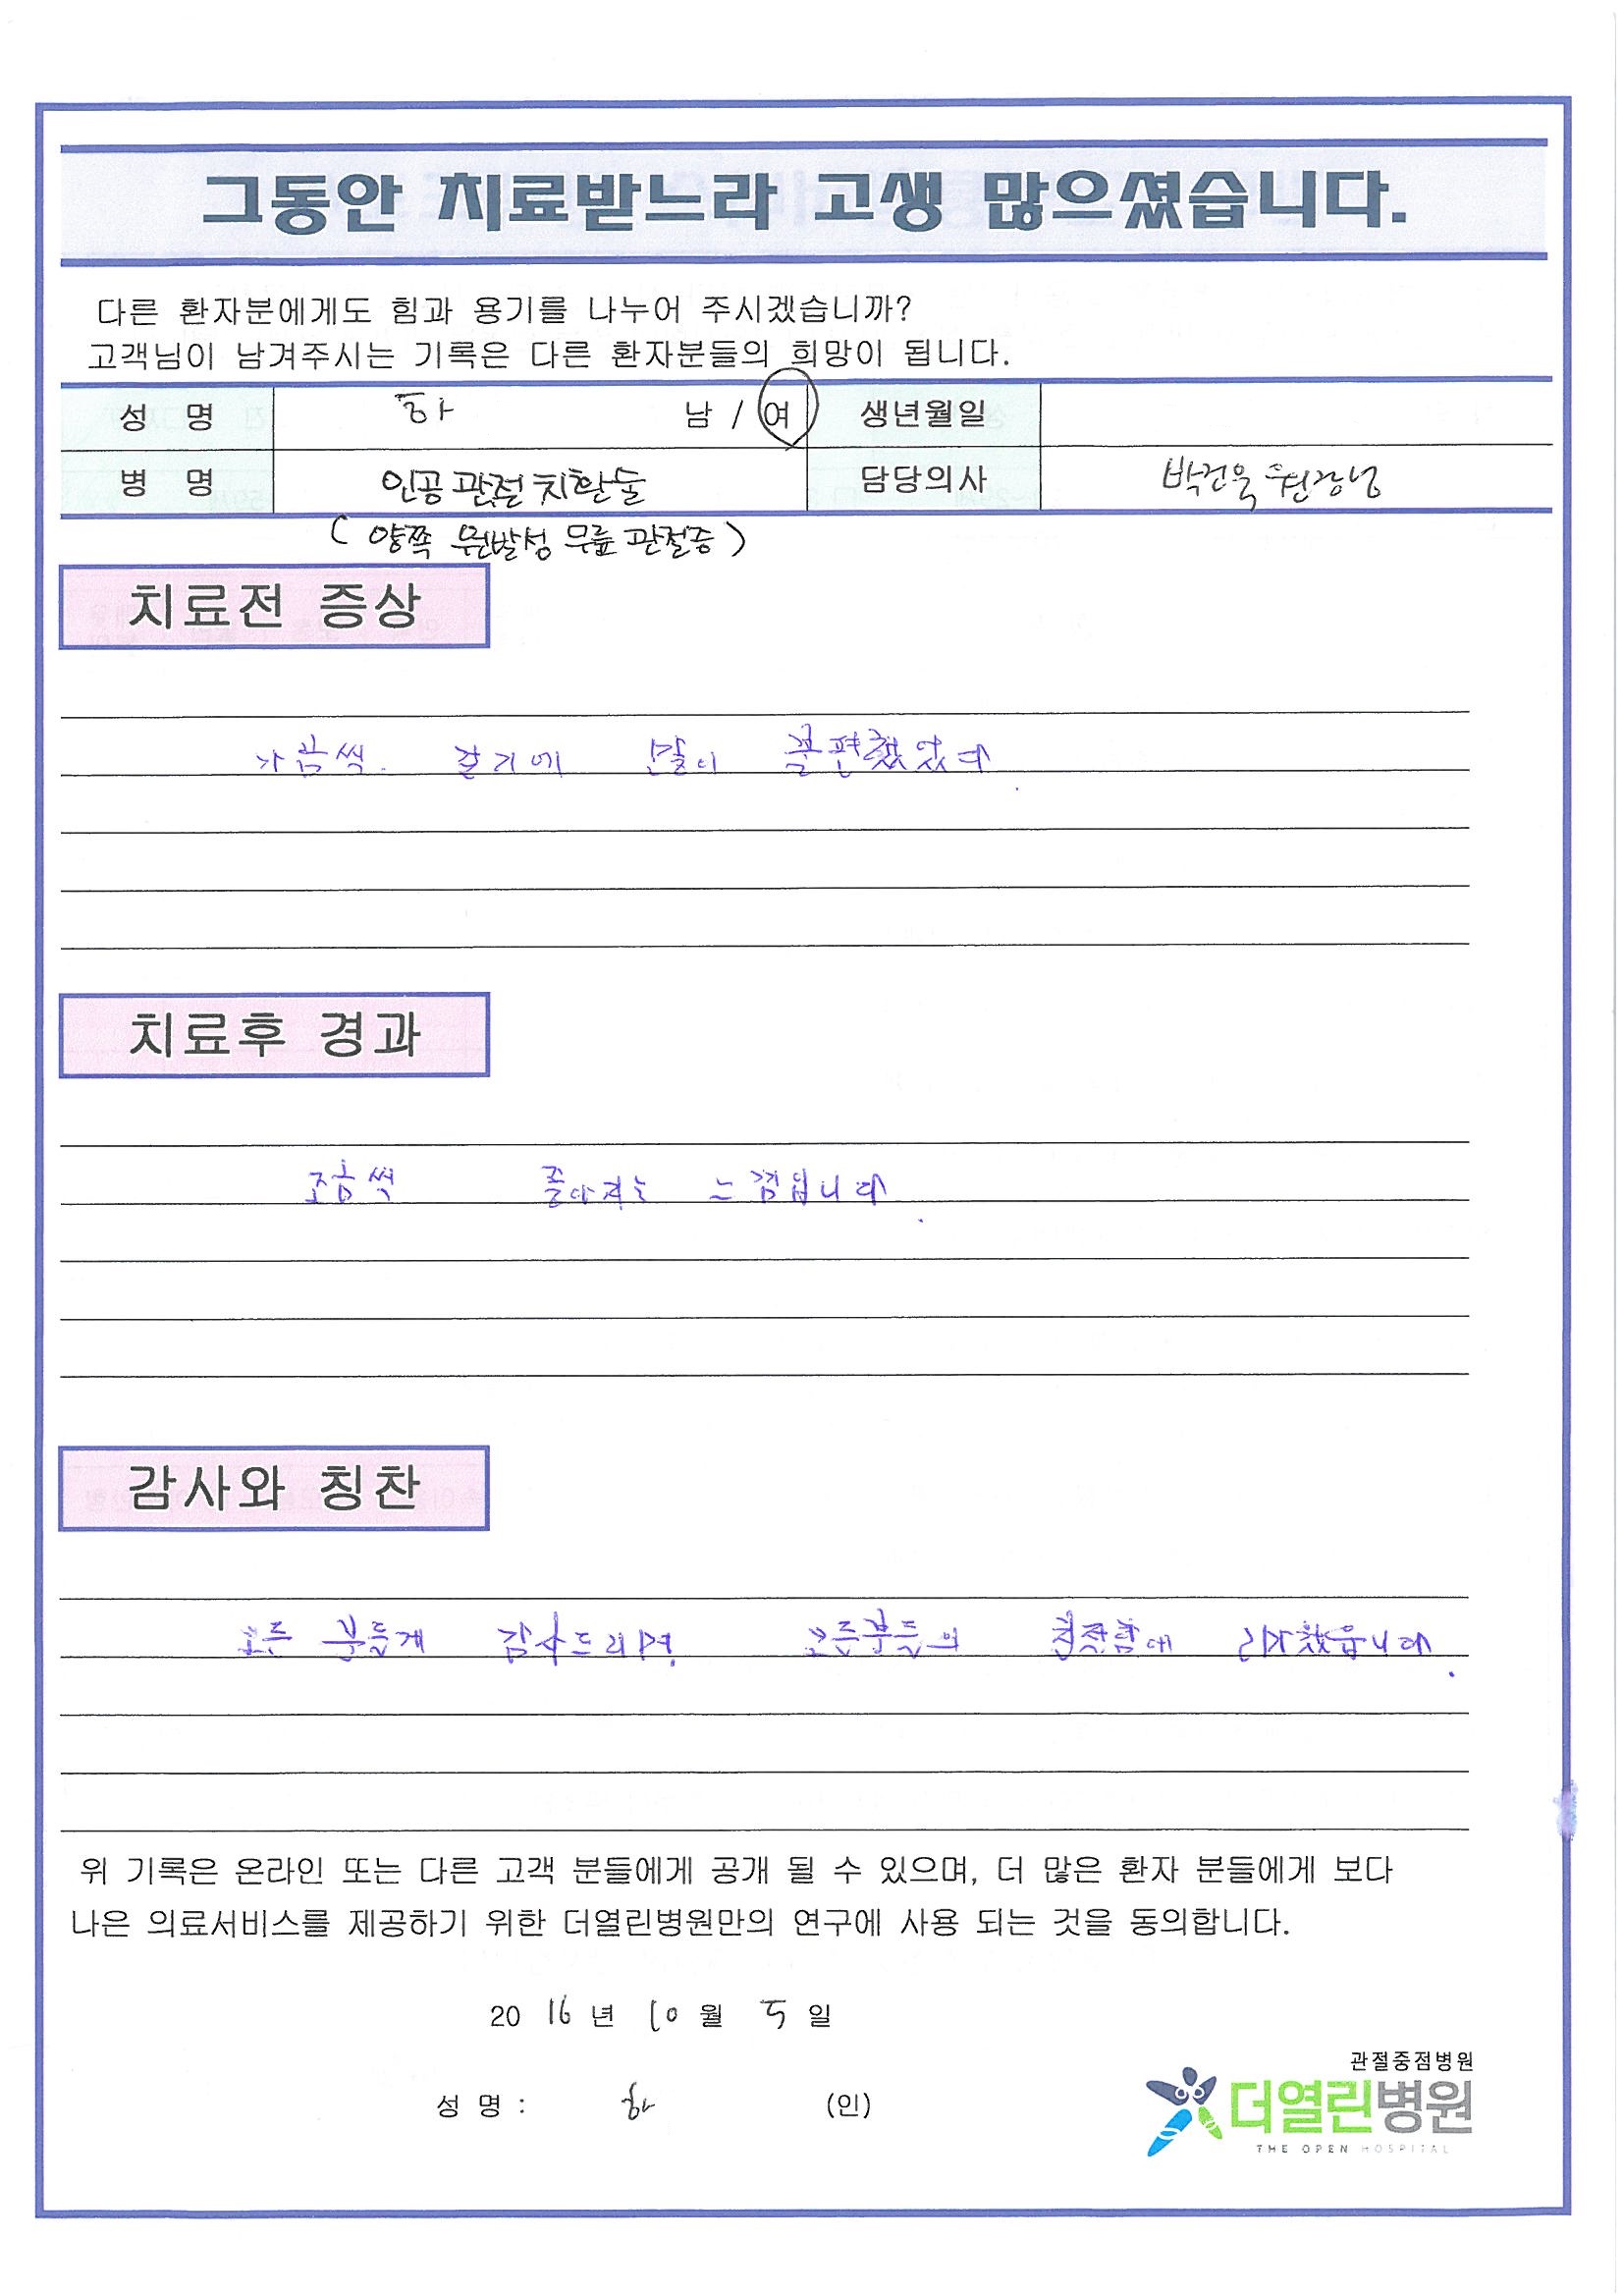 그동안 치료받느라 고생 많으셨습니다.
다른 환자분에게도 힘과 용기를 나누어 주시겠습니까?
고객님이 남겨주시는 기록은 다른 환자분들의 희망이 됩니다.
성 명 하 남 / 여 생년월일
병 명 인공관절치환술 담당의사 박건욱 원장님
( 양쪽 원발성 무릎 관절증 )
치료전 증상
가끔씩. 걷기에 발이 불편했었다.
치료후 경과
조금씩 좋아지는 느낌입니다.
감사와 칭찬
모든 분들게 감사드리며, 모든분들의 친절함에
위 기록은 온라인 또는 다른 고객 분들에게 공개 될 수 있으며, 더 많은 환자 분들에게 보다
나은 의료서비스를 제공하기 위한 더열린병원만의 연구에 사용 되는 것을 동의합니다.
2016년 10월 5일
성 명 : 하 (인)
관절중점병원
더열린병원
THE OPEN HOSPITAL